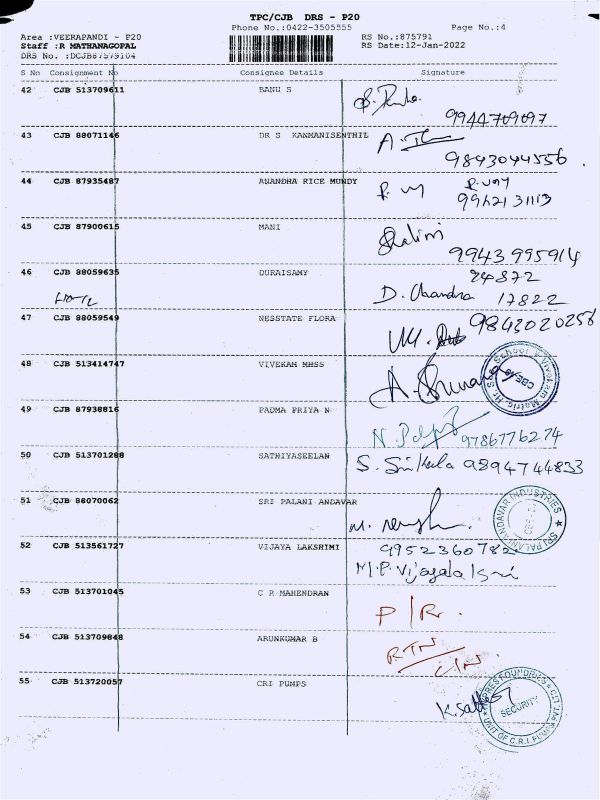 TPC/CJB DRS - P20
Phone No.:0422-3505555 Page No.:4
Area :VEERAPANDI - P20 RS No.:875791
Staff :R MATHANAGOPAL RS Date:12-Jan-2022
DRS No. :DCJB87579104
S No Consignment No Consignee Details Signature
42 CJB 513709611 BANU S
9944709097
43 CJB 88071146 DR S KANMANISENTHIL
9843044556
44 CJB 87935487 ANANDHA RICE MUNDY
9962131113
45 CJB 87900615 MANI
9943995914
46 CJB 88059635 DURAISAMY 94872
D. Chandra 17822
47 CJB 88059549 NESSTATE FLORA 9843020258
48 CJB 513414747 VIVEKAM MHSS
49 CJB 87938816 PADMA PRIYA N
9786776274
50 CJB 513701288 SATHIYASEELAN S. Srikala 9894744833
51 CJB 88070062 SRI PALANI ANDAVAR
SRI PALANIANDAVAR INDUSTRIES
52 CJB 513561727 VIJAYA LAKSHMI 9952360782
53 CJB 513701045 C R MAHENDRAN
P/R.
54 CJB 513709848 ARUNKUMAR B
RTN
55 CJB 513720057 CRI PUMPS
SECURITY